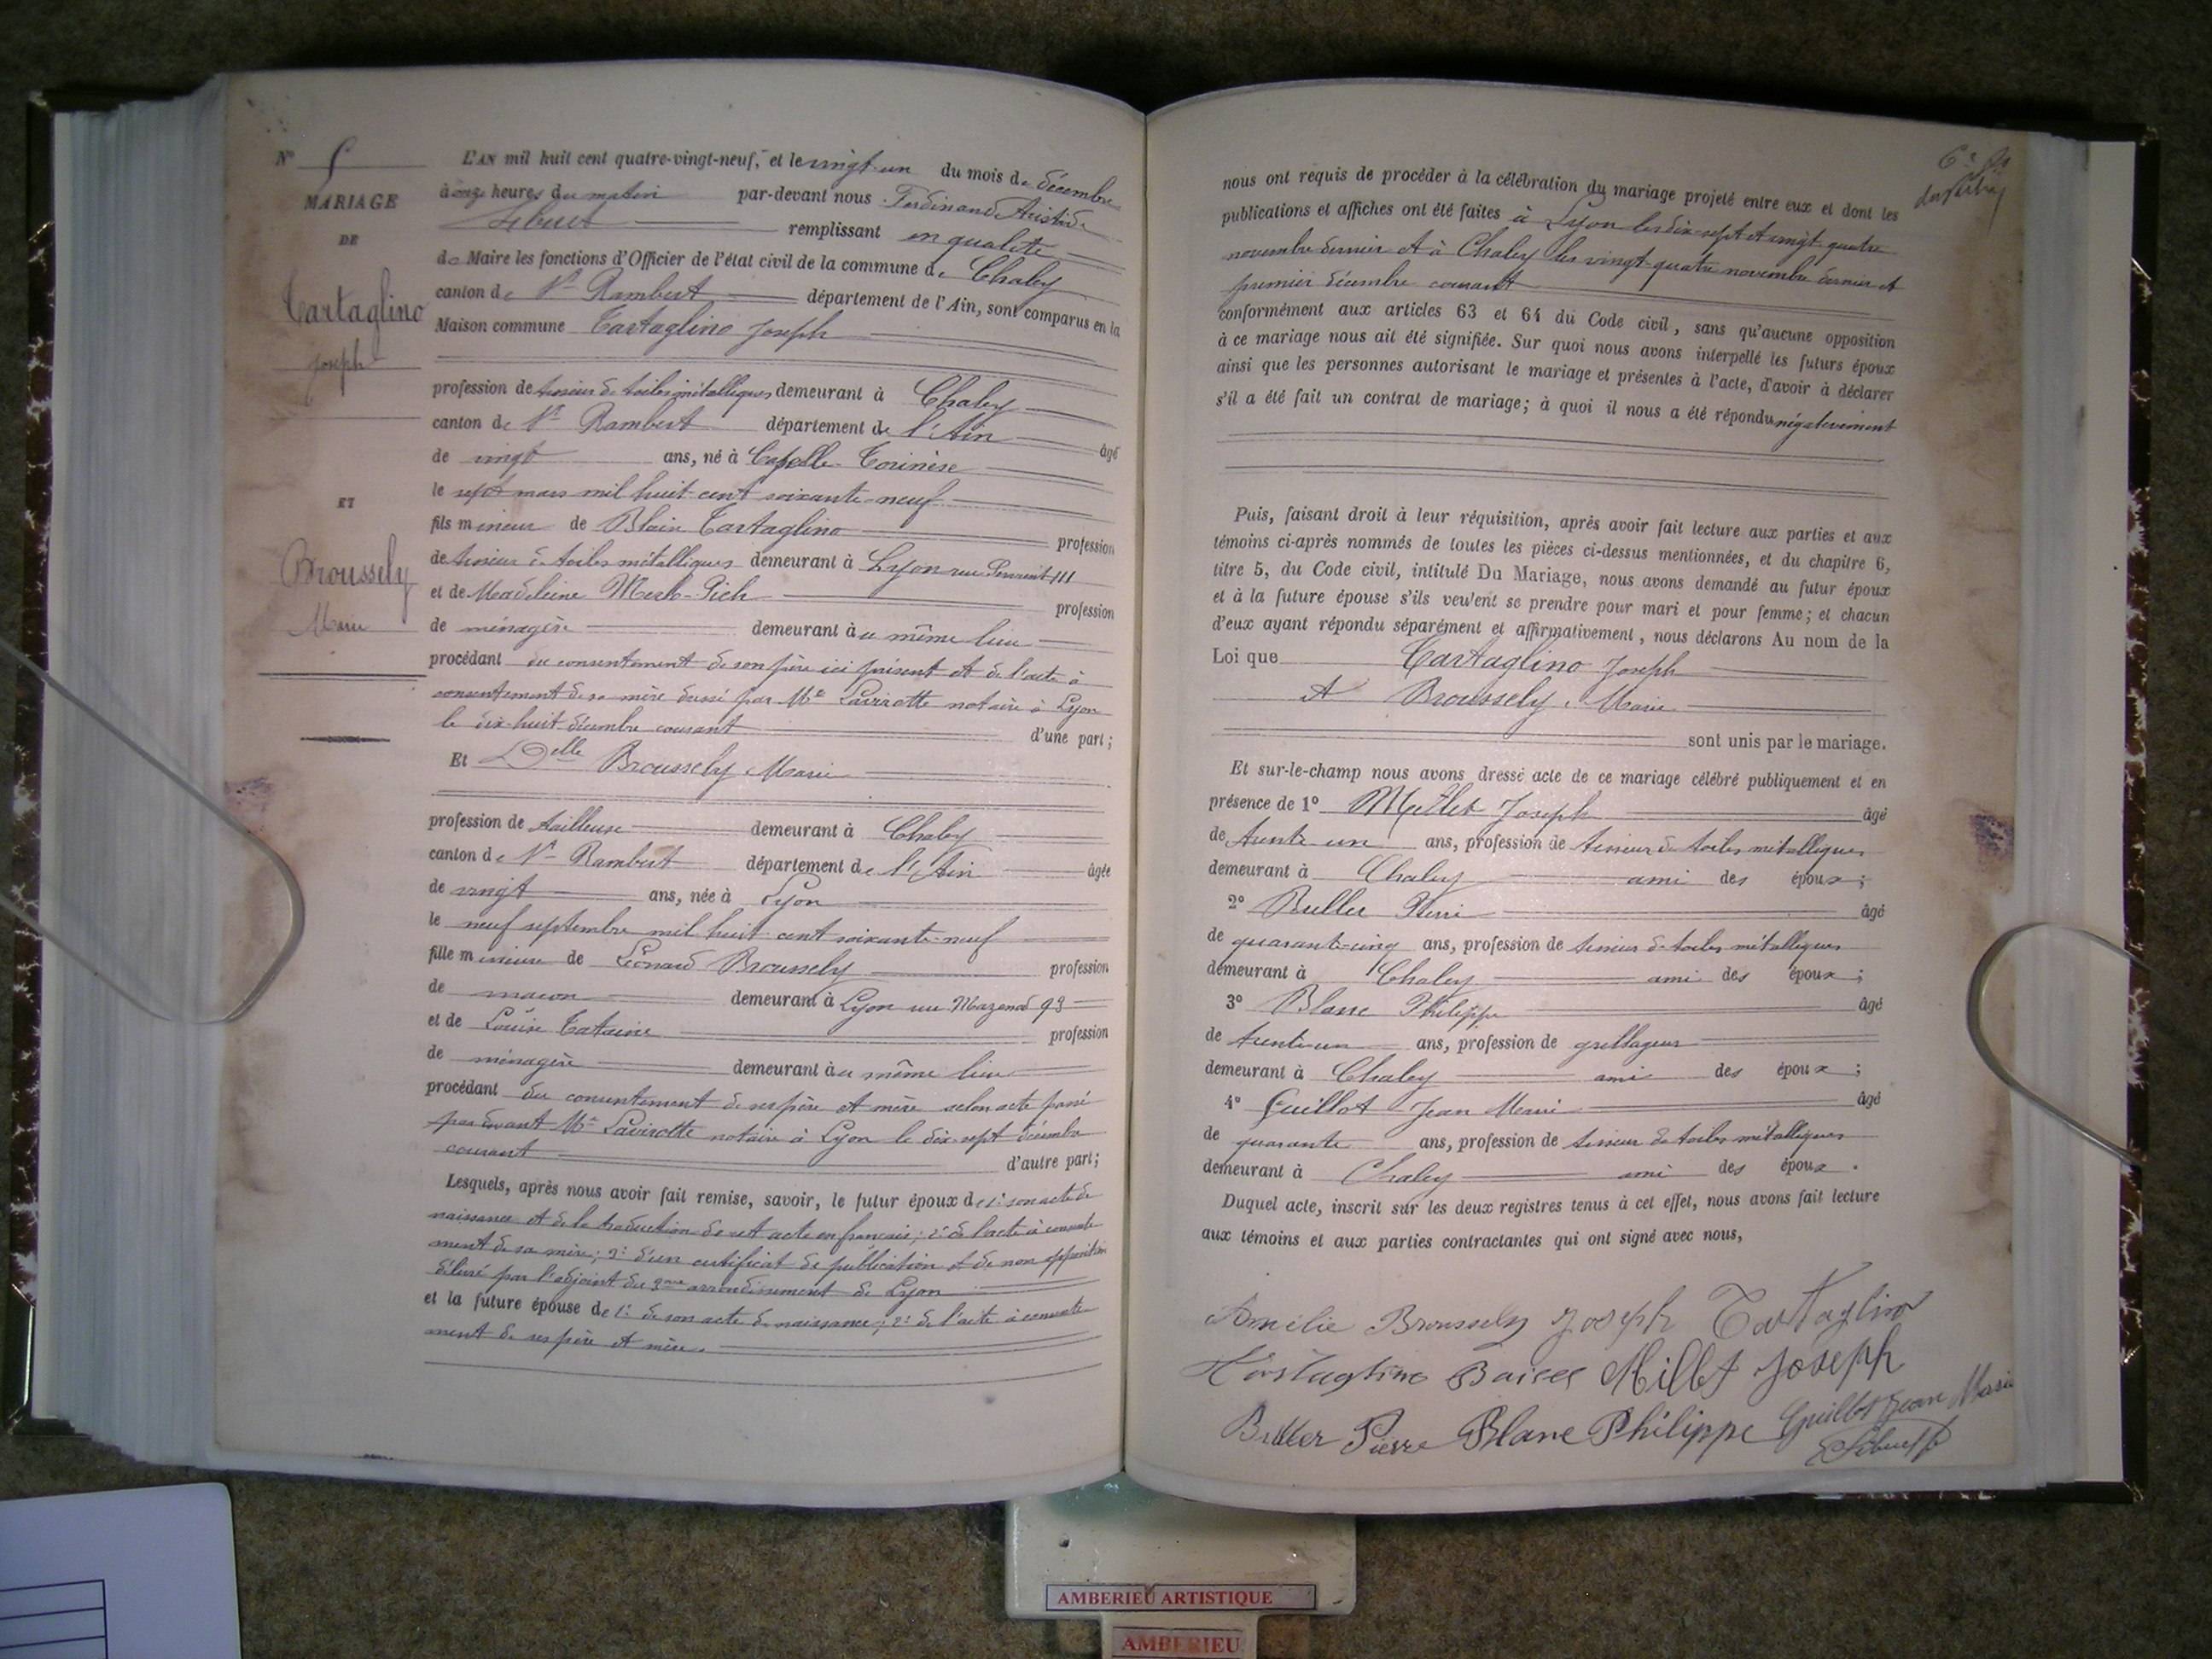 N° 5
MARIAGE
DE
Tartaglino
Joseph
ET
Broussely
Marie
L'AN mil huit cent quatre-vingt-neuf, et le vingt-un du mois de décembre
à onze heures du matin par-devant nous Ferdinand Aristide
remplissant en qualité
de Maire les fonctions d'Officier de l'état civil de la commune de Chaley
canton de St Rambert département de l'Ain, sont comparus en la
Maison commune Tartaglino Joseph
profession de tisseur de toiles métalliques demeurant à Chaley
canton de St Rambert département de l'Ain âgé
de vingt ans, né à Capelle Torinèse
le sept mars mil huit cent soixante-neuf
fils mineur de Blain Tartaglino profession
de tisseur de toiles métalliques demeurant à Lyon rue 111
et de Madeleine Merlo-Pich profession
de ménagère demeurant au même lieu
procédant du consentement de son père ici présent et de l'acte à
consentement de sa mère dressé par Me Lavirotte notaire à Lyon
le dix-huit décembre courant d'une part;
Et Delle Broussely Marie
profession de tailleuse demeurant à Chaley
canton de St Rambert département de l'Ain âgée
de vingt ans, née à Lyon
le neuf septembre mil huit cent soixante-neuf
fille mineure de Léonard Broussely profession
de maçon demeurant à Lyon rue Mazenod 93
et de Louise Tataine profession
de ménagère demeurant au même lieu
procédant du consentement de ses père et mère selon acte passé
par devant Me Lavirotte notaire à Lyon le dix-sept décembre
courant d'autre part;
Lesquels, après nous avoir fait remise, savoir, le futur époux de 1° son acte de
naissance et de la traduction de cet acte en français; 2° de l'acte à consente
ment de sa mère; 3° d'un certificat de publication et de non opposition
délivré par l'adjoint du 3me arrondissement de Lyon
et la future épouse de 1° de son acte de naissance; 2° de l'acte à consente
ment de ses père et mère.
nous ont requis de procéder à la célébration du mariage projeté entre eux et dont les
publications et affiches ont été faites à Lyon les dix-sept et vingt quatre
novembre dernier et à Chaley les vingt-quatre novembre dernier et
premier décembre courant
conformément aux articles 63 et 64 du Code civil, sans qu'aucune opposition
à ce mariage nous ait été signifiée. Sur quoi nous avons interpellé les futurs époux
ainsi que les personnes autorisant le mariage et présentes à l'acte, d'avoir à déclarer
s'il a été fait un contrat de mariage; à quoi il nous a été répondu négativement
Puis, faisant droit à leur réquisition, après avoir fait lecture aux parties et aux
témoins ci-après nommés de toutes les pièces ci-dessus mentionnées, et du chapitre 6,
titre 5, du Code civil, intitulé Du Mariage, nous avons demandé au futur époux
et à la future épouse s'ils veulent se prendre pour mari et pour femme; et chacun
d'eux ayant répondu séparément et affirmativement, nous déclarons Au nom de la
Loi que Tartaglino Joseph
et Broussely, Marie
sont unis par le mariage.
Et sur-le-champ nous avons dressé acte de ce mariage célébré publiquement et en
présence de 1° Millet Joseph âgé
de trente un ans, profession de tisseur de toiles métalliques
demeurant à Chaley ami des époux;
2° Buller Pierre âgé
de quarante-cinq ans, profession de tisseur de toiles métalliques
demeurant à Chaley ami des époux;
3° Blanc Philippe âgé
de trente-un ans, profession de grillageur
demeurant à Chaley ami des époux;
4° Guillot Jean Marie âgé
de quarante ans, profession de tisseur de toiles métalliques
demeurant à Chaley ami des époux.
Duquel acte, inscrit sur les deux registres tenus à cet effet, nous avons fait lecture
aux témoins et aux parties contractantes qui ont signé avec nous,
Amélie Broussely Joseph Tartaglino
Tartaglino Millet Joseph
Buller Pierre Blanc Philippe Guillot Jean Marie
AMBERIEU ARTISTIQUE
AMBERIEU